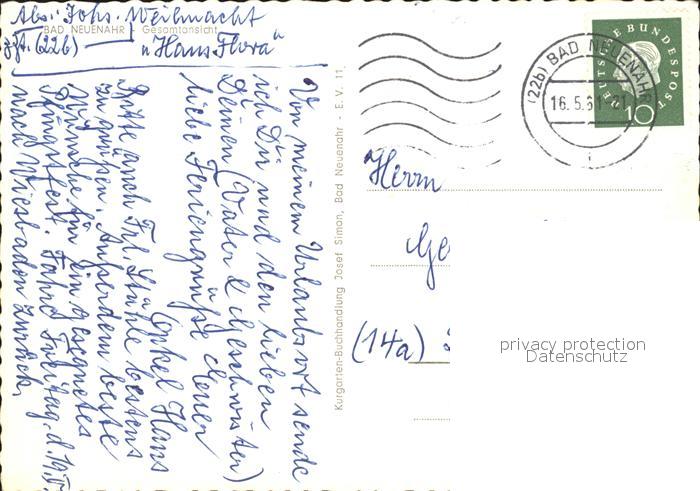 Abs.: Johs. Weihmacht
BAD NEUENAHR Gesamtansicht
zzt. (22b) — "Haus Flora"
Von meinem Urlaubsort sende
ich Dir und den lieben
Deinen (Vater & Geschwister)
liebe Feriengrüße Euer
"Onkel Hans"
Bitte auch Frl. Stühle bestens
zu grüßen. Außerdem beste
Wünsche für ein gesegnetes
Pfingstfest. Fahre Freitag, d. 19.5.
nach Wiesbaden zurück.
Kurgarten-Buchhandlung Josef Simon, Bad Neuenahr - E. V. 11
DEUTSCHE BUNDESPOST
10
(22b) BAD NEUENAHR
16.5.61
Herrn
Ge
(14a)
privacy protection
Datenschutz